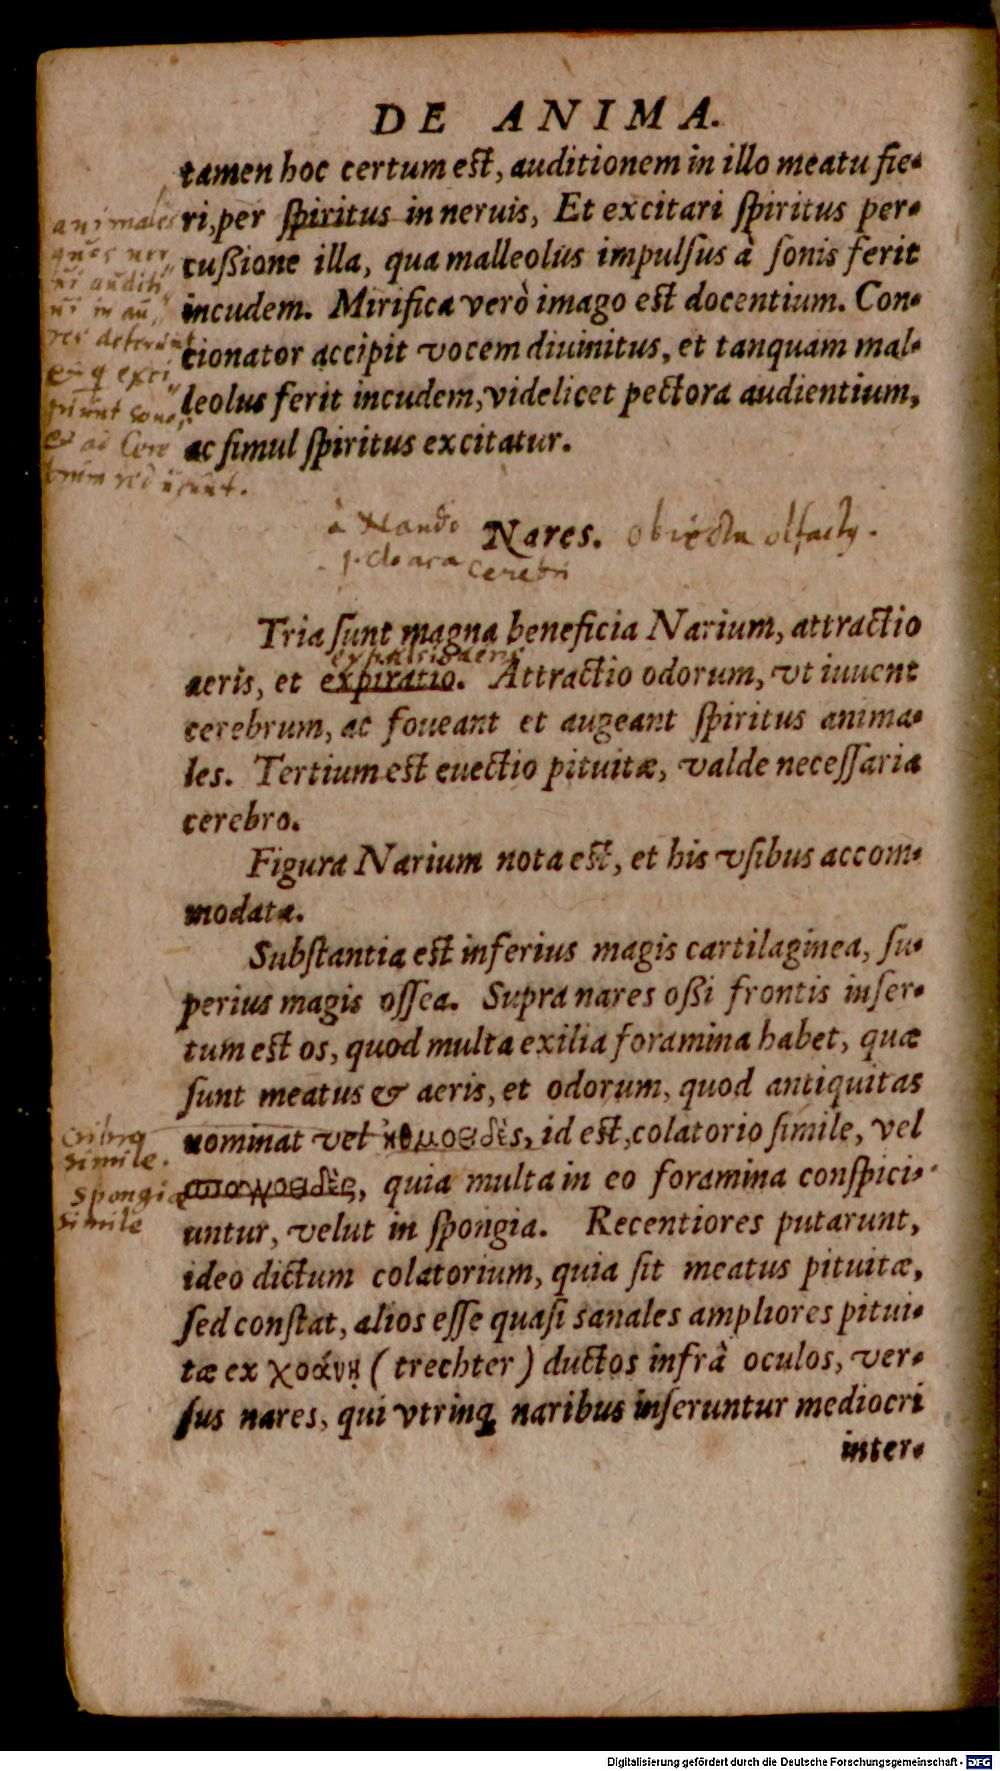 DE ANIMA.
tamen hoc certum est, auditionem in illo meatu fie-
ri, per spiritus in neruis, Et excitari spiritus per-
cußione illa, qua malleolus impulsus à sonis ferit
incudem. Mirifica verò imago est docentium. Con-
cionator accipit vocem diuinitus, et tanquam mal-
leolus ferit incudem, videlicet pectora audientium,
ac simul spiritus excitatur.
animales
in au
et ad Cere
à Nando Nares. obiecta olfactus.
cloaca cerebri
Tria sunt magna beneficia Narium, attractio
expulsio aeris
aeris, et expiratio. Attractio odorum, vt iuuent
cerebrum, ac foueant et augeant spiritus anima-
les. Tertium est euectio pituitæ, valde necessaria
cerebro.
Figura Narium nota est, et his vsibus accom-
modata.
Substantia est inferius magis cartilaginea, su-
perius magis ossea. Supra nares oßi frontis inser-
tum est os, quod multa exilia foramina habet, quæ
sunt meatus & aeris, et odorum, quod antiquitas
nominat vel ἠθμοειδὲς, id est, colatorio simile, vel
σπογγοειδὲς, quia multa in eo foramina conspici-
untur, velut in spongia. Recentiores putarunt,
ideo dictum colatorium, quia sit meatus pituitæ,
sed constat, alios esse quasi sanales ampliores pitui-
tæ ex χοάνη (trechter) ductos infrà oculos, ver-
sus nares, qui vtrinq; naribus inseruntur mediocri
inter-
cribro
simile.
spongiæ
simile
Digitalisierung gefördert durch die Deutsche Forschungsgemeinschaft - DFG